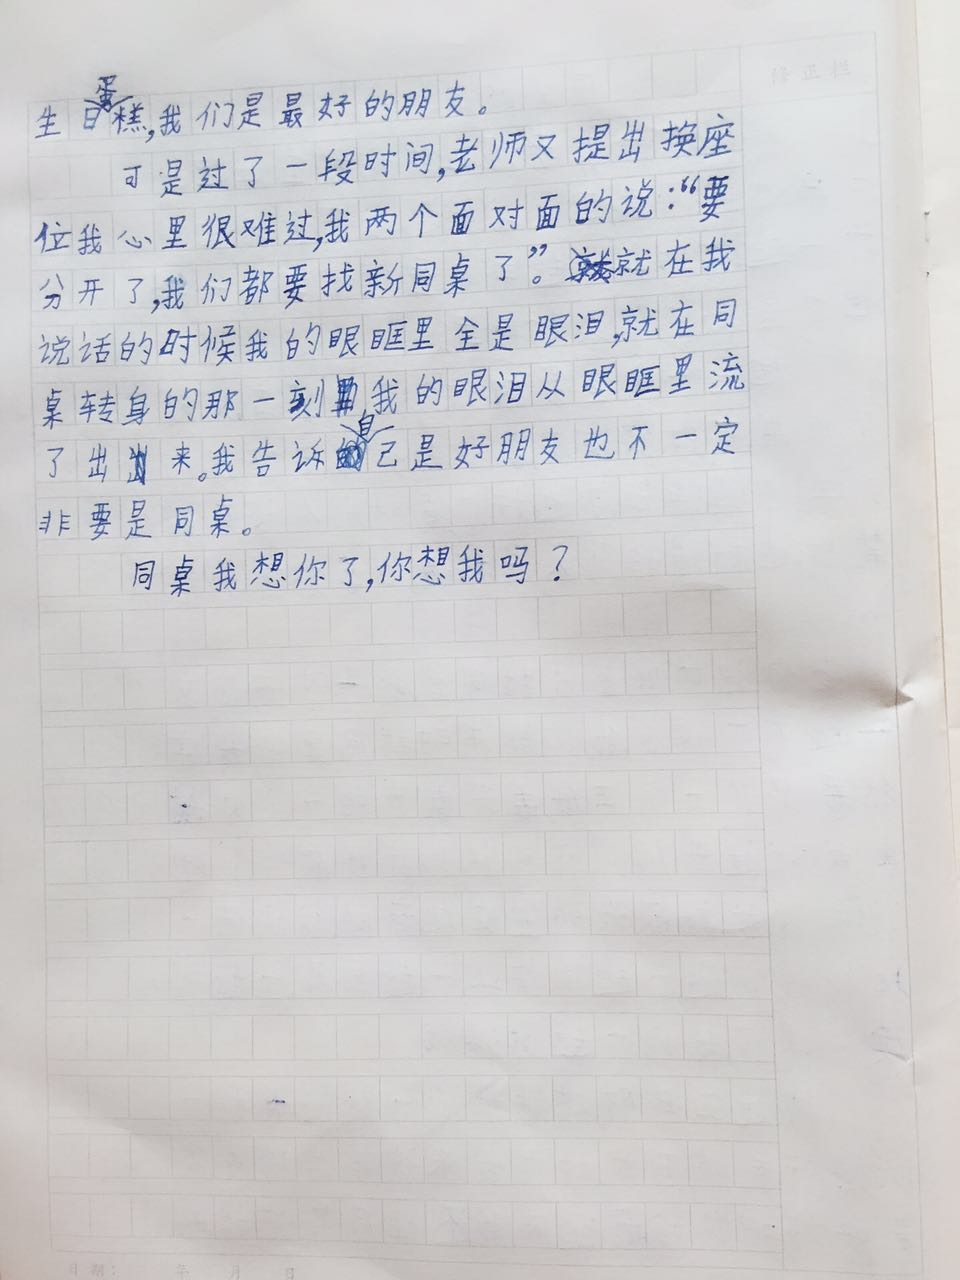 修正栏
生日蛋糕,我们是最好的朋友。
可是过了一段时间,老师又提出换座
位我心里很难过,我两个面对面的说:“要
分开了,我们都要找新同桌了”。就在我
说话的时候我的眼眶里全是眼泪,就在同
桌转身的那一刻,我的眼泪从眼眶里流
了出来。我告诉自己是好朋友也不一定
非要是同桌。
同桌我想你了,你想我吗?
日期: 年 月 日